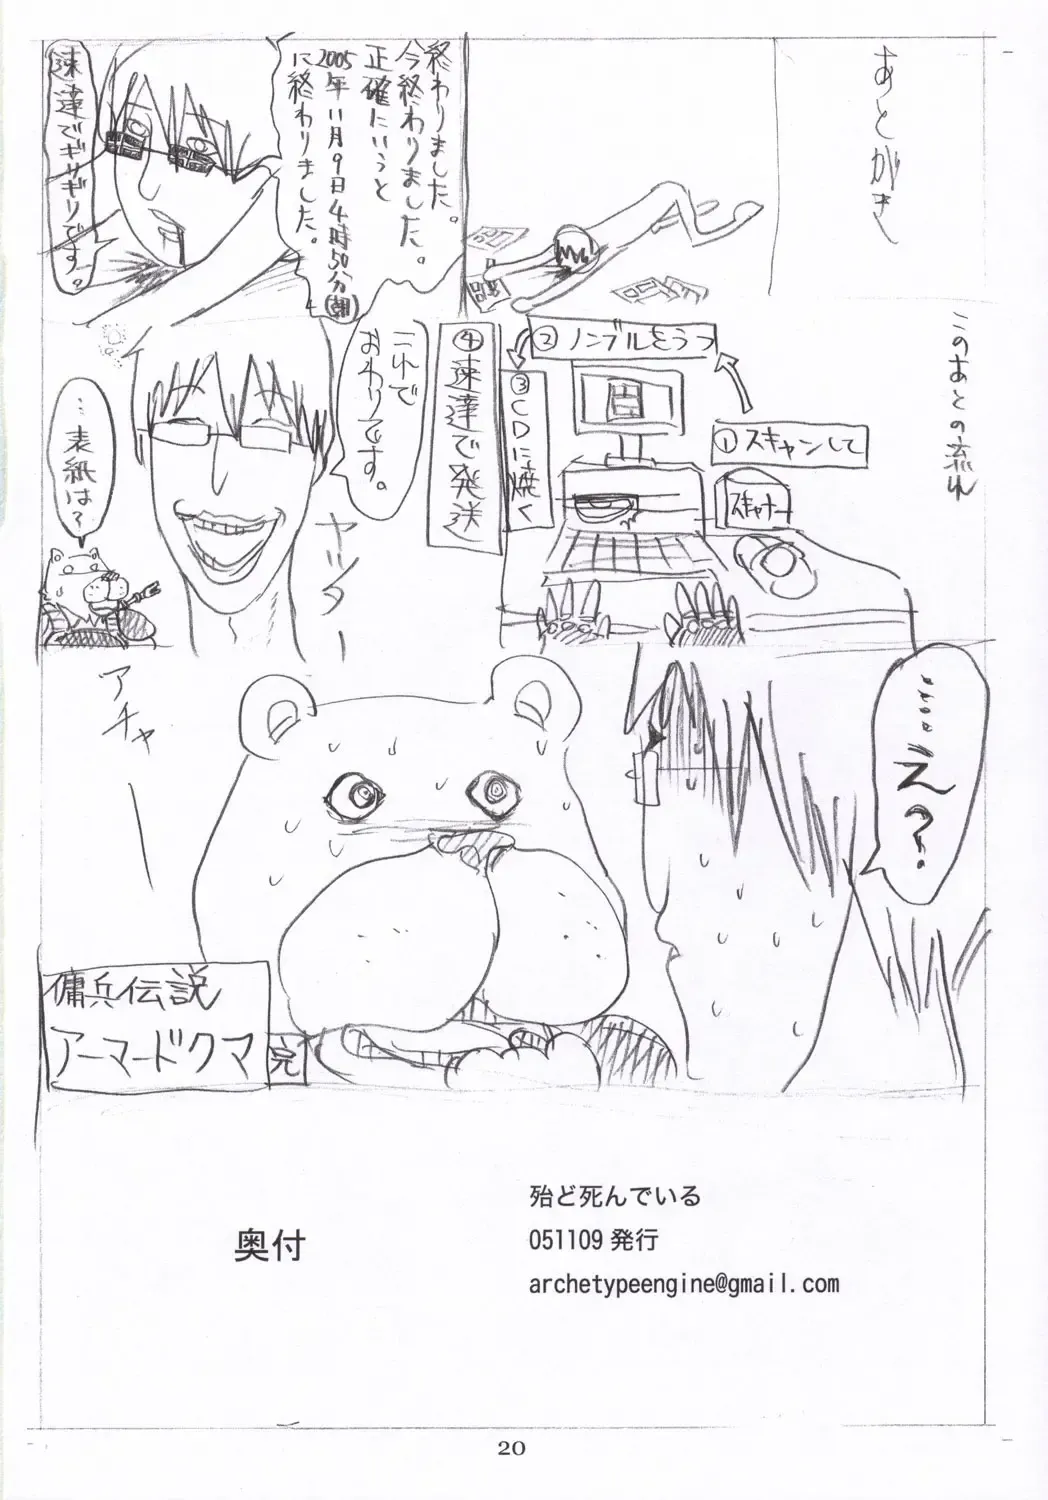 あとがき
終わりました。
今終わりました。
正確にいうと
2005年11月9日4時50分(朝)
に終わりました。
速達でギリギリです。
このあとの流れ
①スキャンして
スキャナー
②ノンブルをうつ
③CDに焼く
④速達で発送
これで
おわりです。
ヤッター
…表紙は?
……え?
アチャー
傭兵伝説
アーマードクマ
完
奥付
殆ど死んでいる
051109 発行
archetypeengine@gmail.com
20